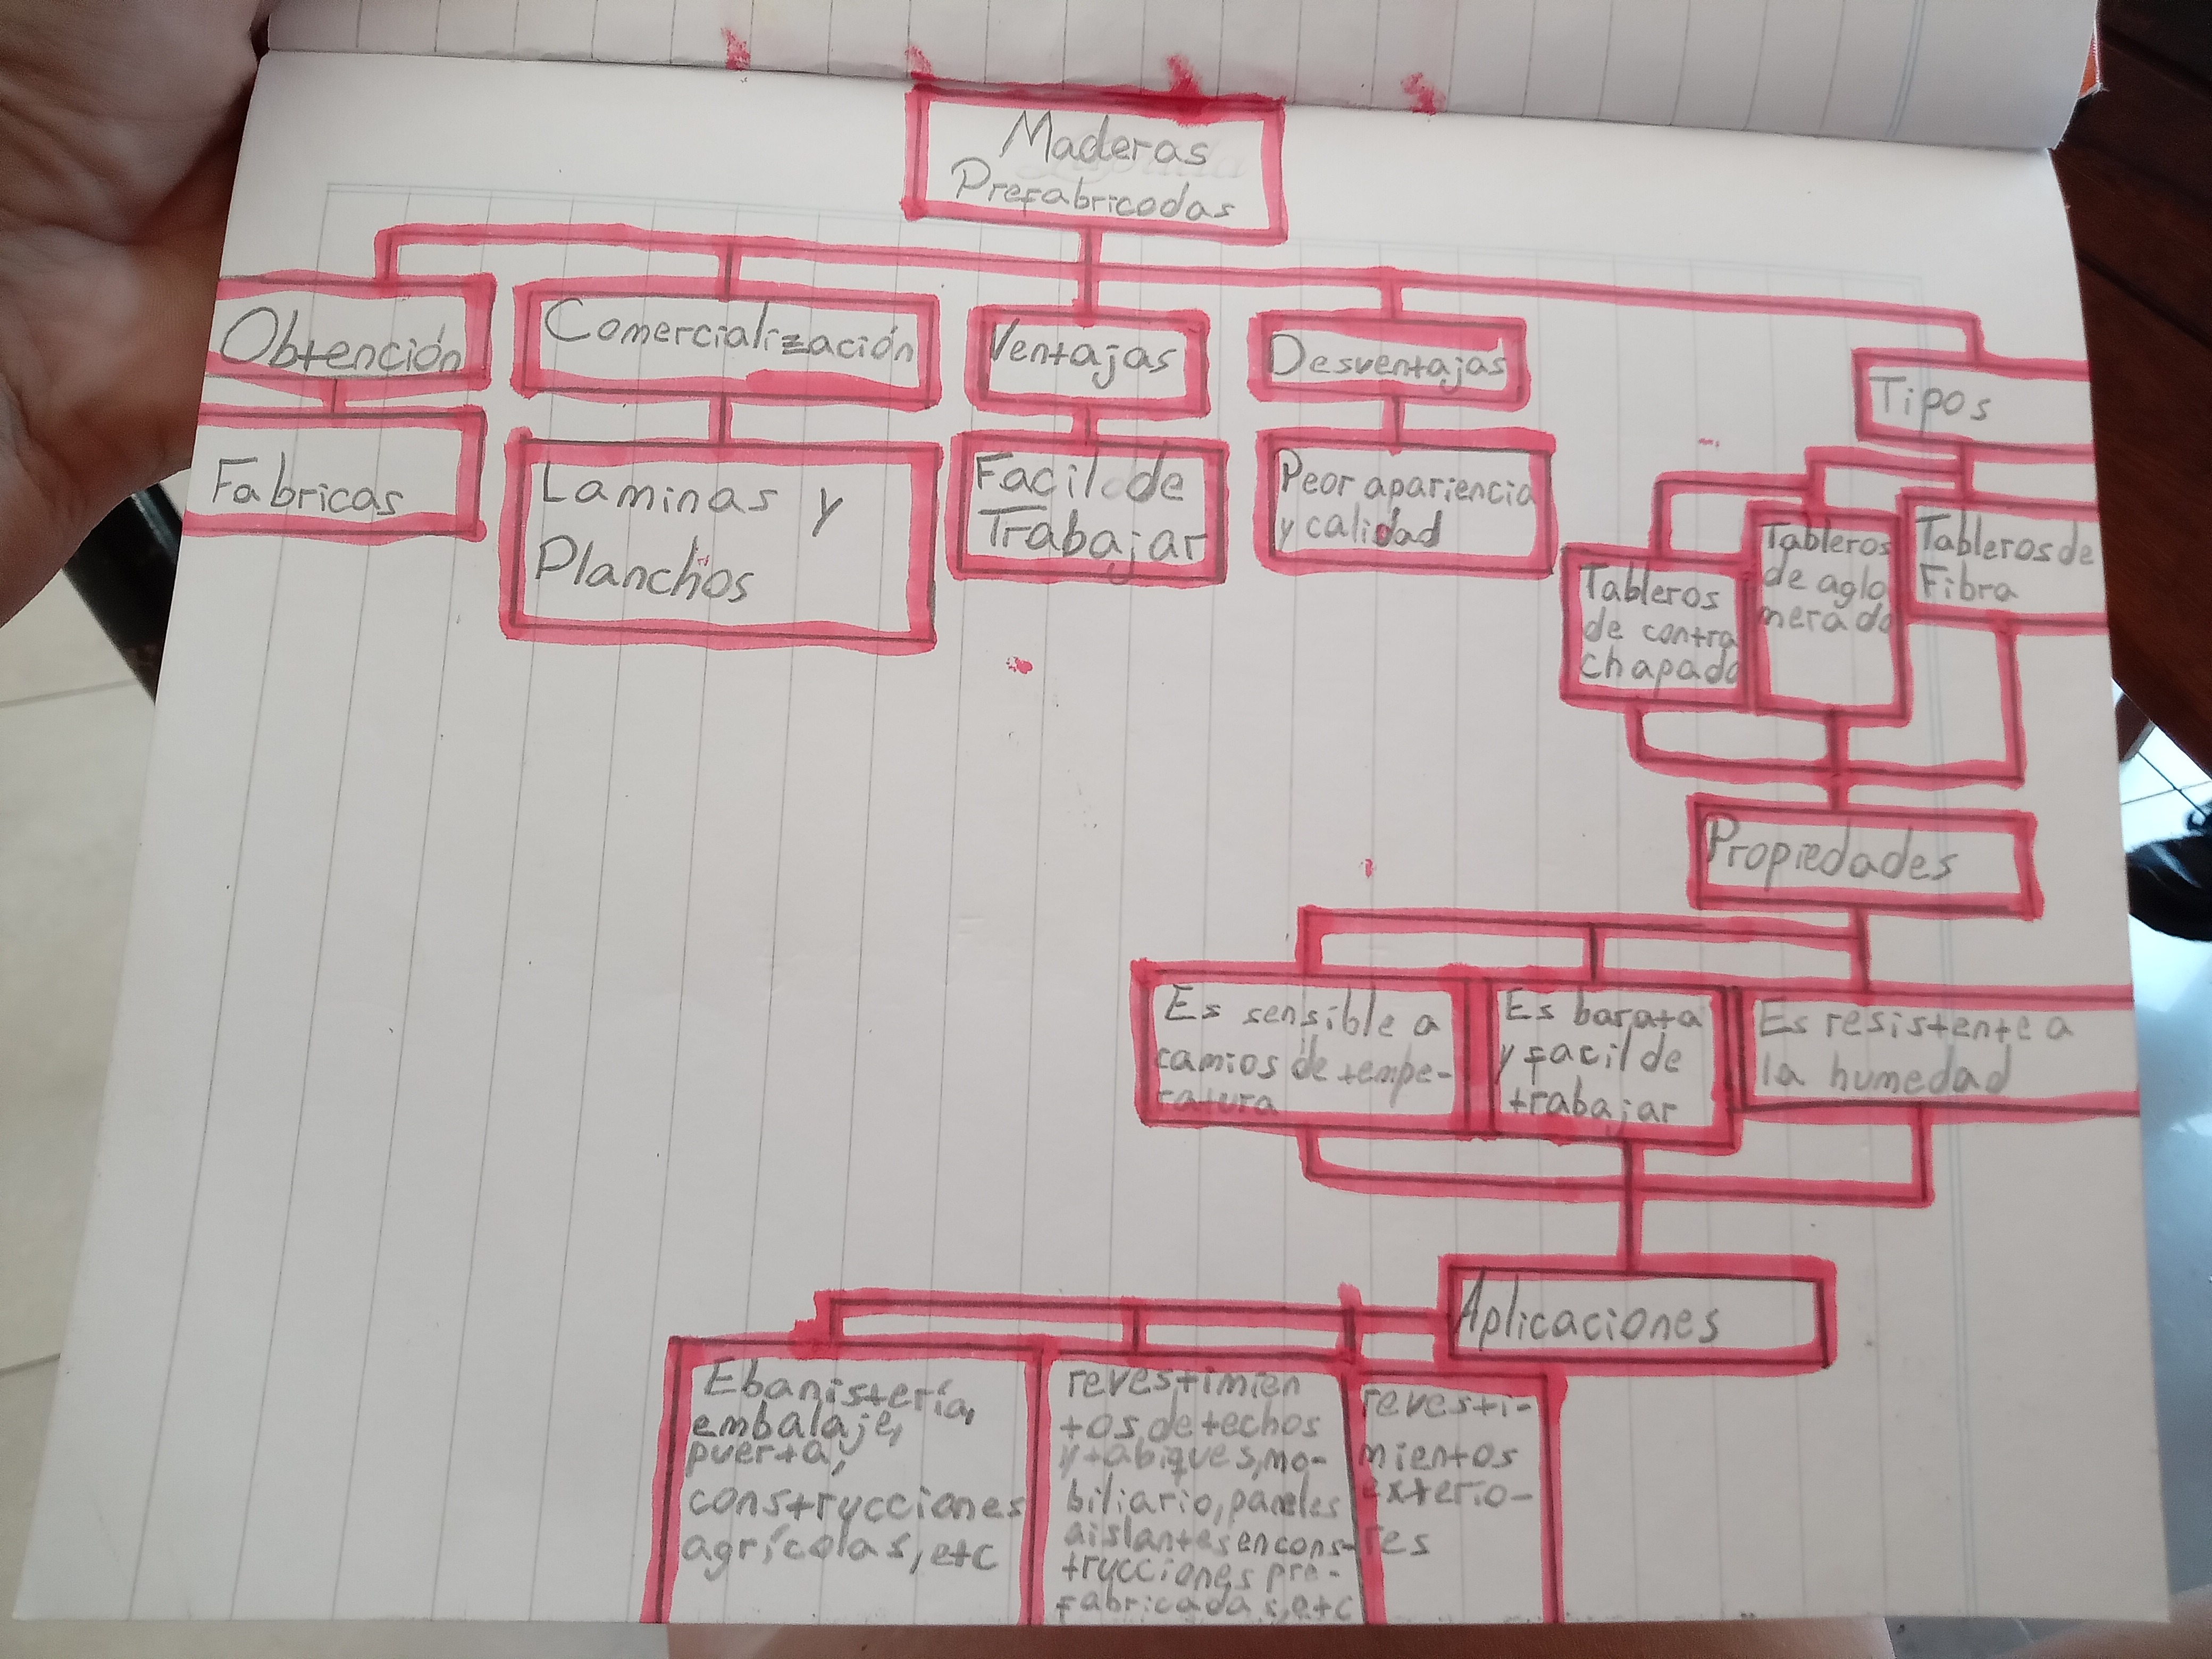 Maderas
Prefabricadas
Obtención
Comercialización
Ventajas
Desventajas
Tipos
Fabricas
Laminas y
Planchos
Facil de
Trabajar
Peor apariencia
y calidad
Tableros
de contra
chapado
Tableros
de aglo
merado
Tableros de
Fibra
Propiedades
Es sensible a
camios de tempe-
ratura
Es barata
y facil de
trabajar
Es resistente a
la humedad
Aplicaciones
Ebanistería,
embalaje,
puerta,
construcciones
agrícolas, etc
revestimien
tos de techos
y tabiques, mo-
biliario, paneles
aislantes en cons-
trucciones pre-
fabricadas, etc
revesti-
mientos
exterio-
res